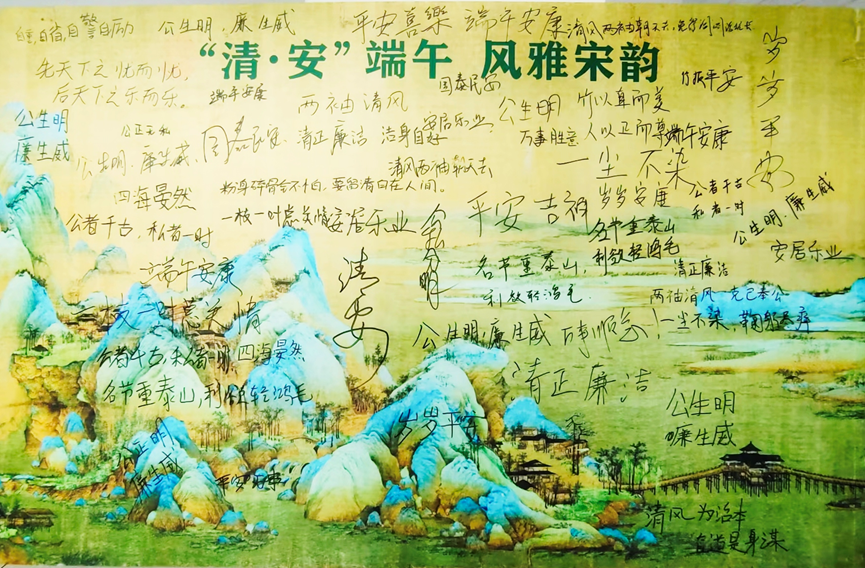 自重自省自警自励
公生明,廉生威
平安喜樂
端午安康
清风两袖朝天去
岁岁平安
“清·安”端午 风雅宋韵
先天下之忧而忧,
后天下之乐而乐。
端午安康
两袖清风
国泰民安
公生明
竹以直而美
竹报平安
公生明
廉生威
公正无私
公生明、廉生威、
国泰民安
清正廉洁
洁身自好
安居乐业
万事胜意
人以正而尊
端午安康
一尘不染
清风两袖朝天去
四海晏然
粉身碎骨全不怕,要留清白在人间。
平安吉祥
岁岁安康
公者千古
私者一时
公生明,廉生威
公者千古,私者一时
一枝一叶总关情
安居乐业
公生明
名节重泰山
利欲轻鸿毛
安居乐业
端午安康
清安
名节重泰山,
利欲轻鸿毛.
清正廉洁
两袖清风
克己奉公
一枝一叶总关情
公生明,廉生威
万事顺意!
一尘不染,鞠躬尽瘁
公者千古,私者一时
四海晏然
名节重泰山,利欲轻鸿毛
清正廉洁
公生明
廉生威
岁岁平安
公生明
廉生威
清风为治本
直道是身谋